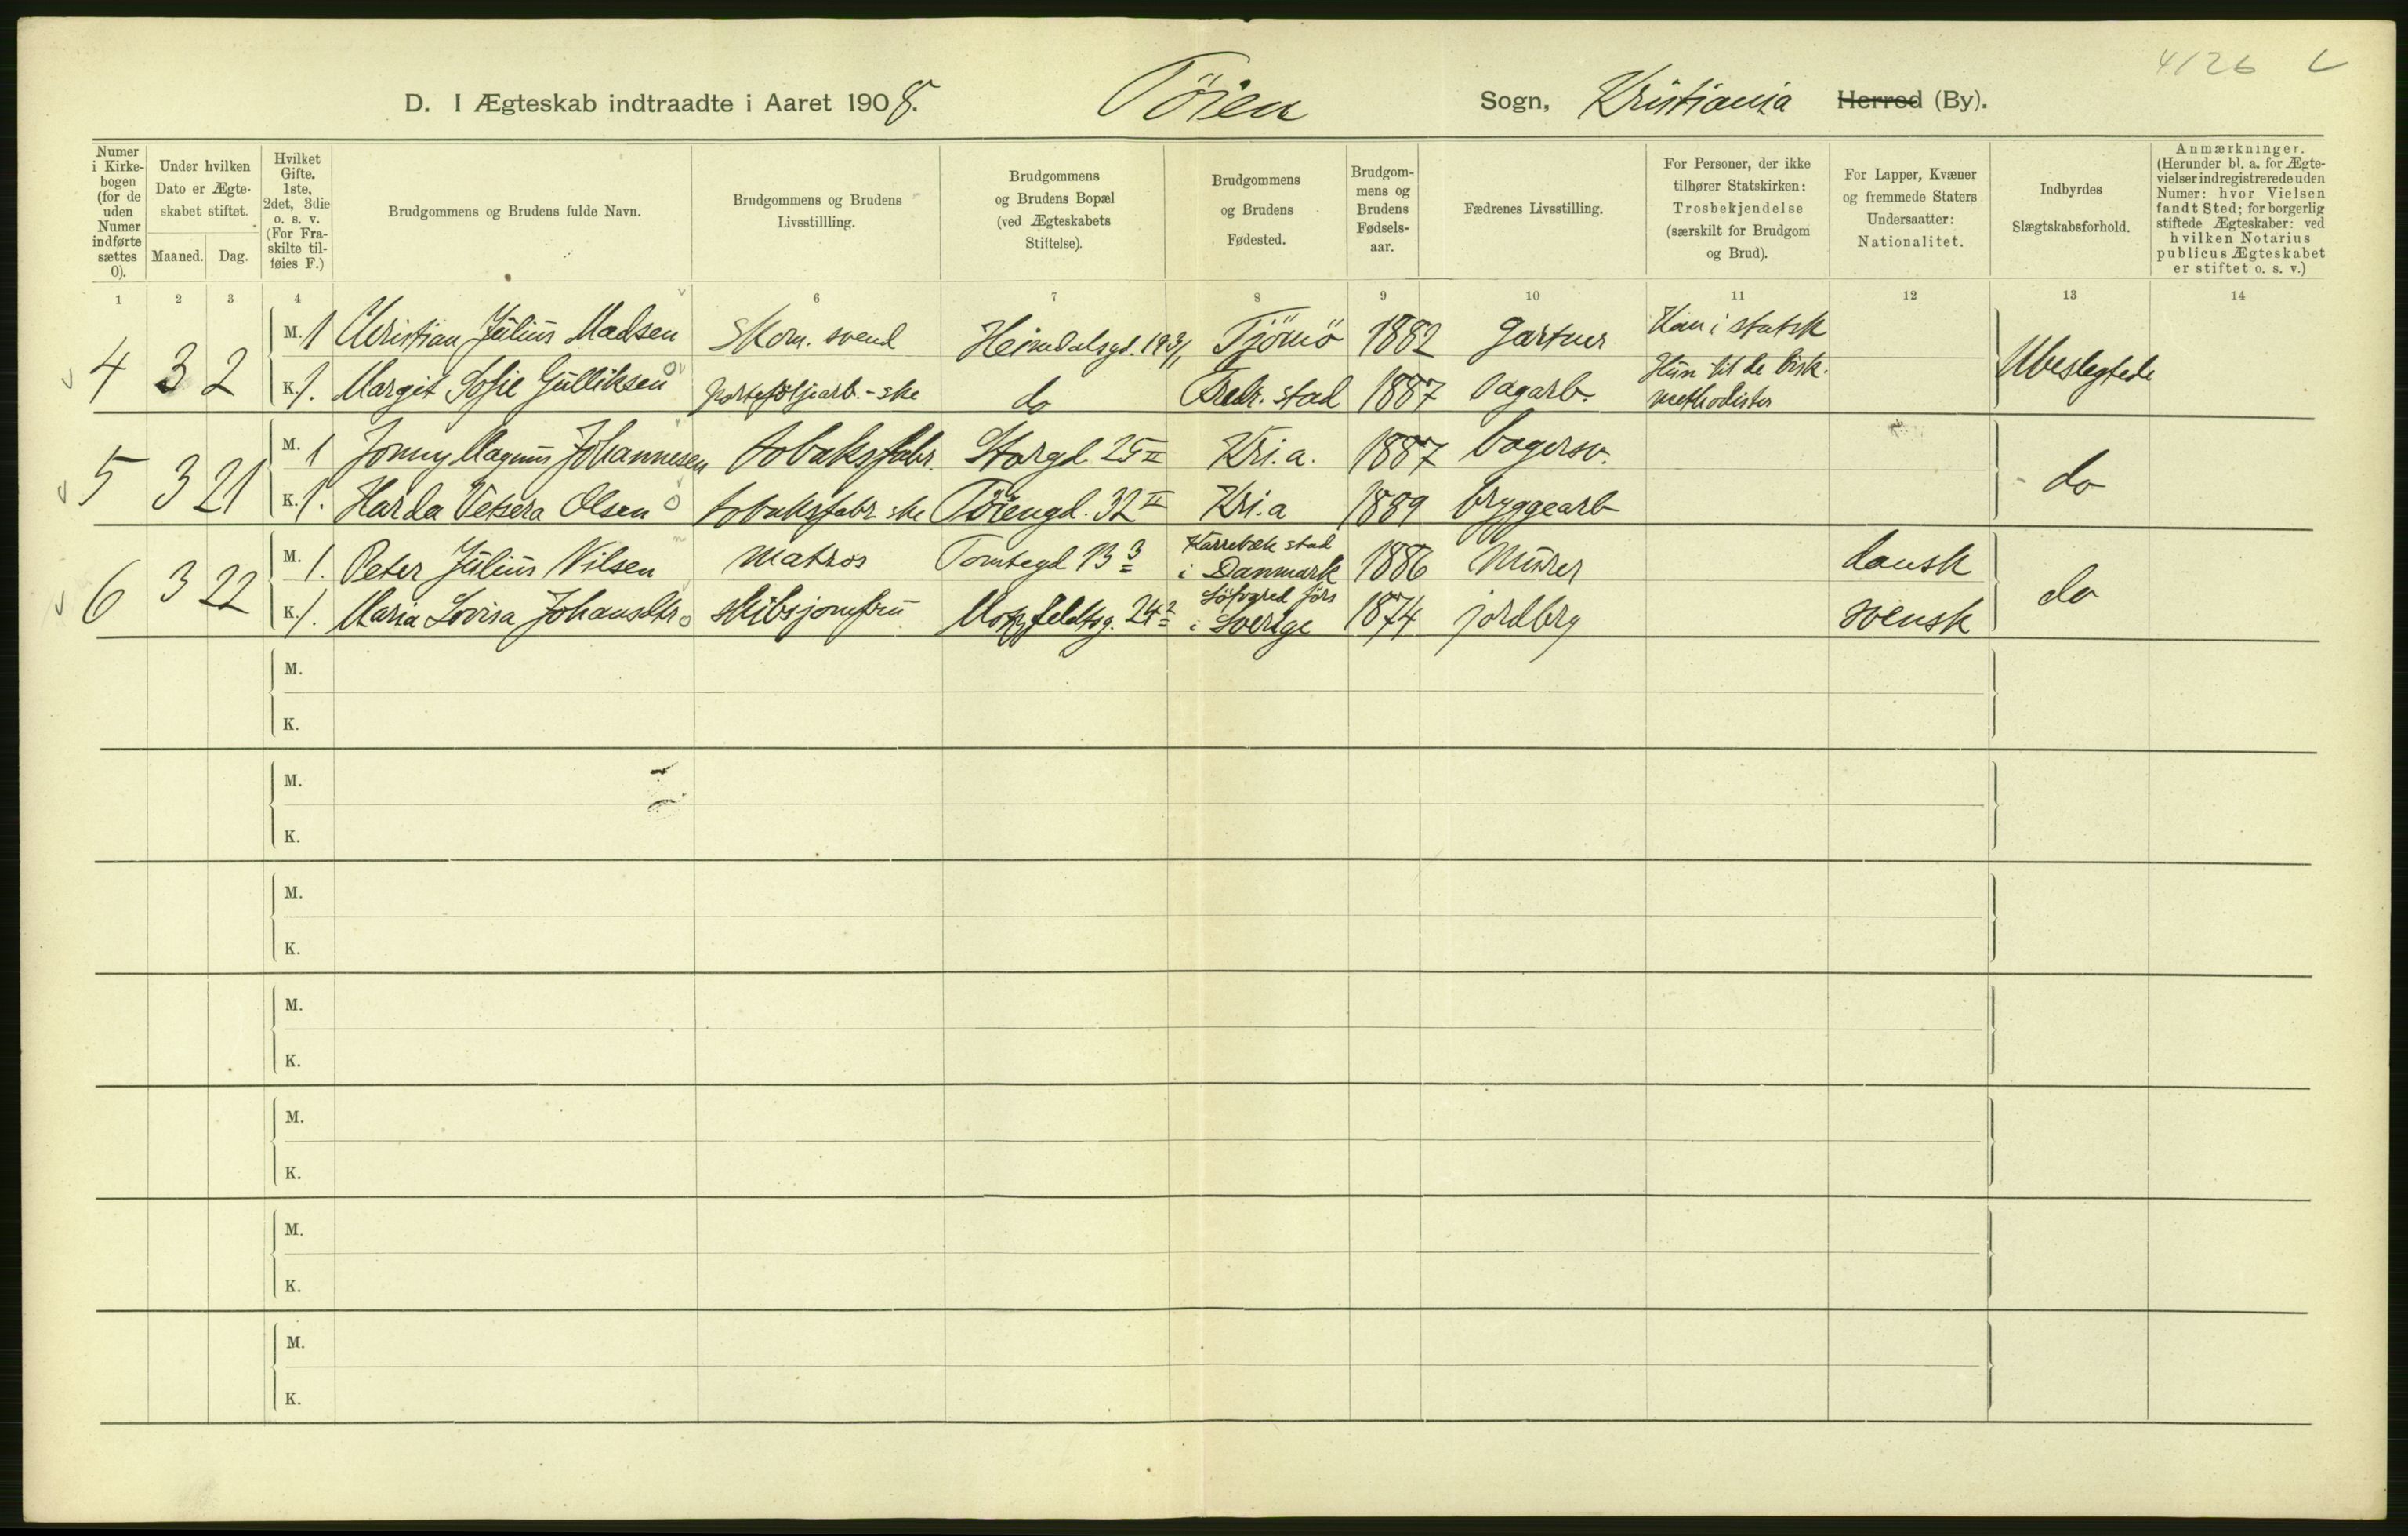 4126
D. I Ægteskab indtraadte i Aaret 1908. Töien Sogn, Kristiania Herred (By).
Numer i Kirkebogen (for de uden Numer indførte sættes 0).
Under hvilken Dato er Ægteskabet stiftet.
Maaned. Dag.
Hvilket Gifte. 1ste, 2det, 3die o. s. v. (For Fraskilte tilføies F.)
Brudgommens og Brudens fulde Navn.
Brudgommens og Brudens Livsstillling.
Brudgommens og Brudens Bopæl (ved Ægteskabets Stiftelse).
Brudgommens og Brudens Fødested.
Brudgommens og Brudens Fødselsaar.
Fædrenes Livsstilling.
For Personer, der ikke tilhører Statskirken: Trosbekjendelse (særskilt for Brudgom og Brud).
For Lapper, Kvæner og fremmede Staters Undersaatter: Nationalitet.
Indbyrdes Slægtskabsforhold.
Anmærkninger. (Herunder bl. a. for Ægtevielser indregistrerede uden Numer: hvor Vielsen fandt Sted; for borgerlig stiftede Ægteskaber: ved hvilken Notarius publicus Ægteskabet er stiftet o. s. v.)
1 2 3 4 6 7 8 9 10 11 12 13 14
4 3 2 M. 1 Christian Julius Madsen Skom. svend Heimdalsgd. Tjömö 1882 Gartner Han i statsk Ubeslegtede
K. 1. Margit Sofie Gulliksen porteföljearb.-ske do Fredr. stad 1887 Dagarb. Hun til de bisk. methodister
5 3 21 M. 1 Jonny Magnus Johannesen tobaksfabr. Storgd. 25 II Kri.a. 1887 bagersv. do
K. 1. Harda Vetsera Olsen tobaksfabr ske Töiengd. 32 II Kri.a 1889 bryggearb
6 3 22 M. 1. Peter Julius Nilsen Matros Tomtegd 13 3 Karrebæk stad i Danmark 1886 Murer dansk do
K. 1. Maria Lovisa Johansdtr skibsjomfru 24 2 i Sverige 1874 jordbrg svensk
M.
K.
M.
K.
M.
K.
M.
K.
M.
K.
M.
K.
M.
K.